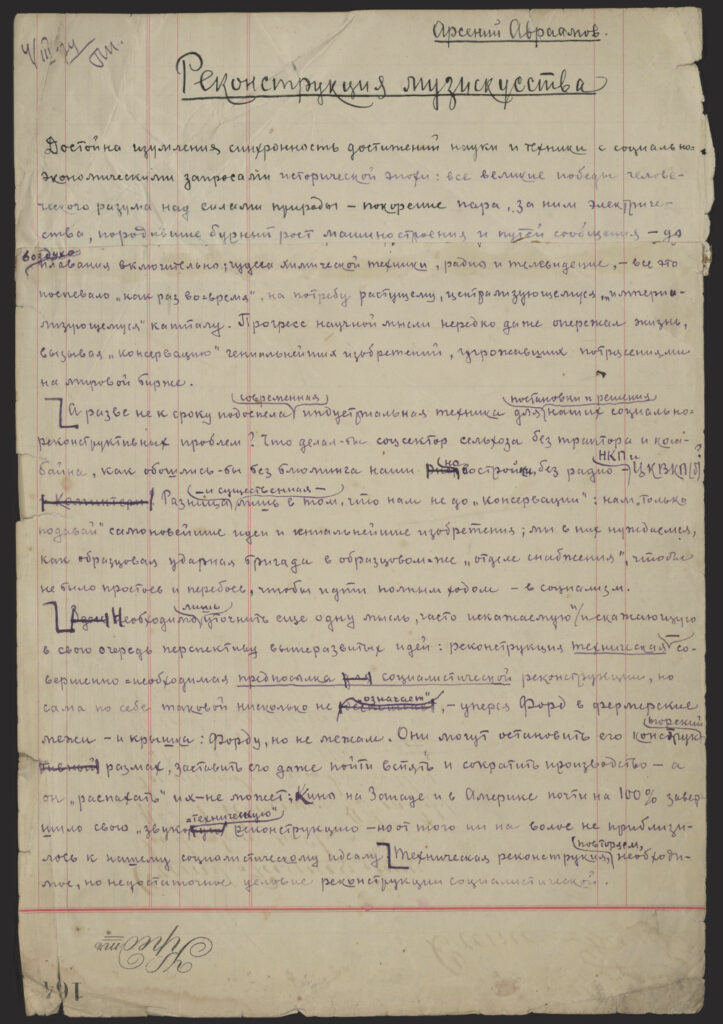 Арсений Авраамов.
Реконструкция музискусства
Достойна изумления синхронность достижений науки и техники с социально-
экономическими запросами исторической эпохи: все великие победы челове-
ческого разума над силами природы – покорение пара, за ним электриче-
ства, породившие бурный рост машиностроения и путей сообщения – до
воздухо
плавания включительно; чудеса химической техники, радио и телевидение, – все это
поспевало „как раз во-время", на потребу растущему, централизующемуся, „импери-
ализующемуся" капиталу. Прогресс научной мысли нередко даже опережал жизнь,
вызывая „консервацию" гениальнейших изобретений, угрожавших потрясениями
на мировой бирже.
современная постановки и решения
А разве не к сроку подоспела индустриальная техника для наших социально-
реконструктивных проблем? Что делал-бы соцсектор сельхоза без трактора и ком-
но НКП и
байна, как обошлись-бы без блюминга наши востройки, без радио – ЦКВКП(б)?
Коминтерн
– и существенная –
Разница лишь в том, что нам не до „консервации": нам „только
подавай" самоновейшие идеи и гениальнейшие изобретения; мы в них нуждаемся,
как образцовая ударная бригада в образцовом-же „отделе снабжения", чтобы
не было простоев и перебоев, чтобы идти полным ходом – в социализм.
лишь
Необходимо уточнить еще одну мысль, часто искажаемую и искажающую
в свою очередь перспективу вышеразвитых идей: реконструкция техническая – со-
вершенно необходимая предпосылка социалистической реконструкции, но
„означает"
сама по себе таковой нисколько не – уперся Форд в фермерские
межи – и крышка: Форду, но не межам. Они могут остановить его конструк-
торский
тивный размах, заставить его даже пойти вспять и сократить производство – а
он „распахать" их – не может; Кино на Западе и в Америке почти на 100% завер-
„техническую"
шило свою „звуковую реконструкцию – но от того ни на волос не приблизи-
повторяем,
лось к нашему социалистическому идеалу. Техническая реконструкция необходи-
мое, но недостаточное условие реконструкции социалистической.
164